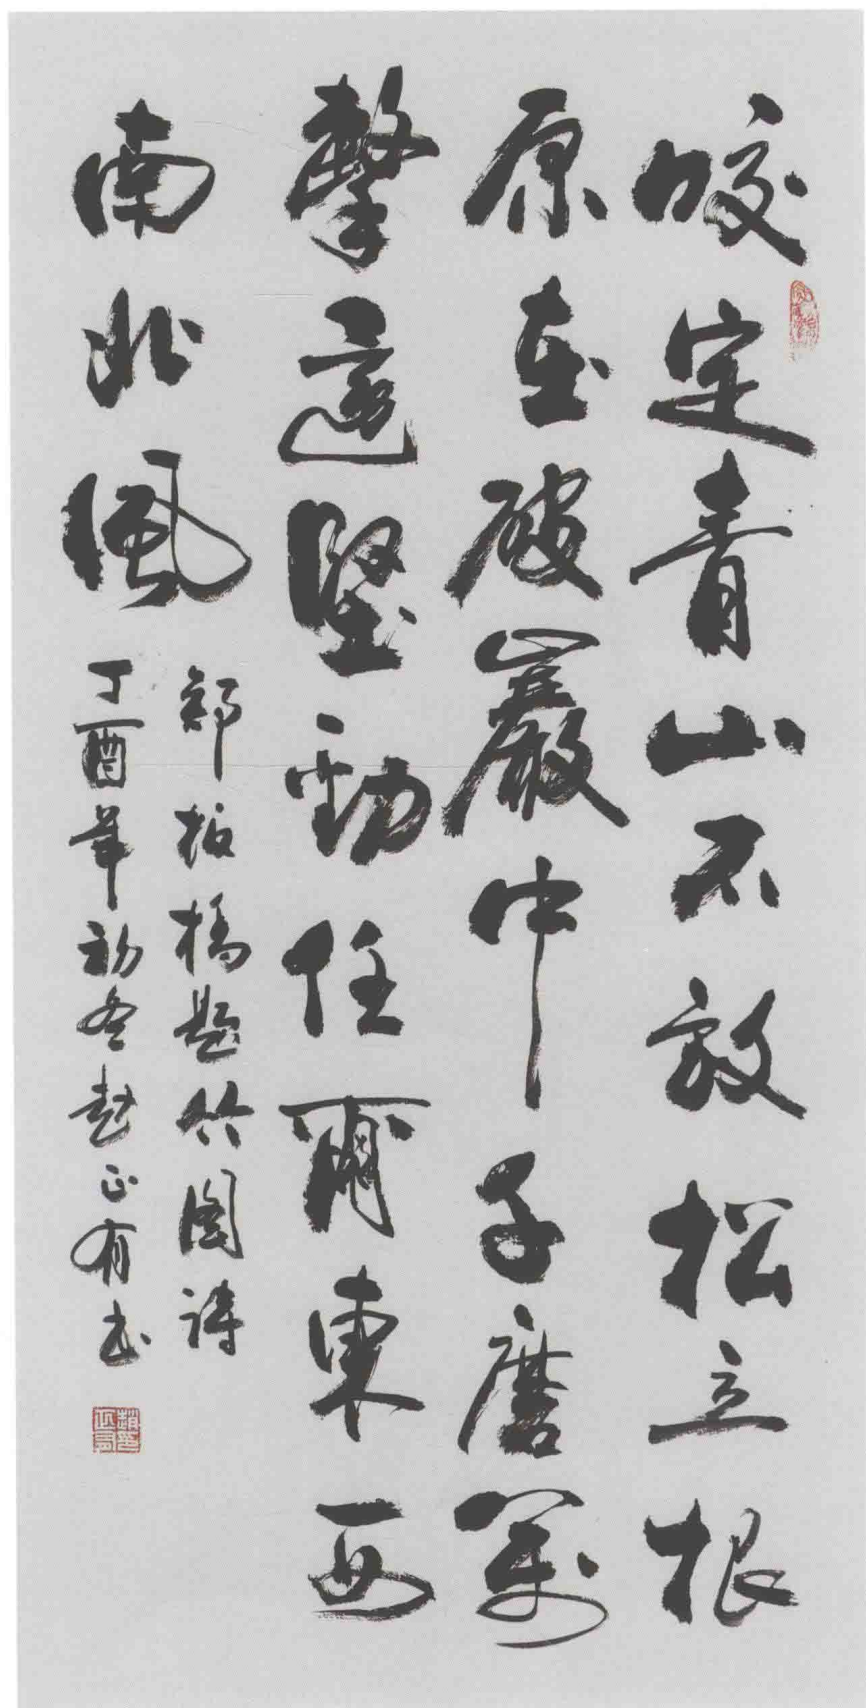 咬定青山不放松立根
原在破巖中千磨萬
擊還堅勁任爾東西
南北風
鄭板橋題竹圖詩
丁酉年初冬趙正有書